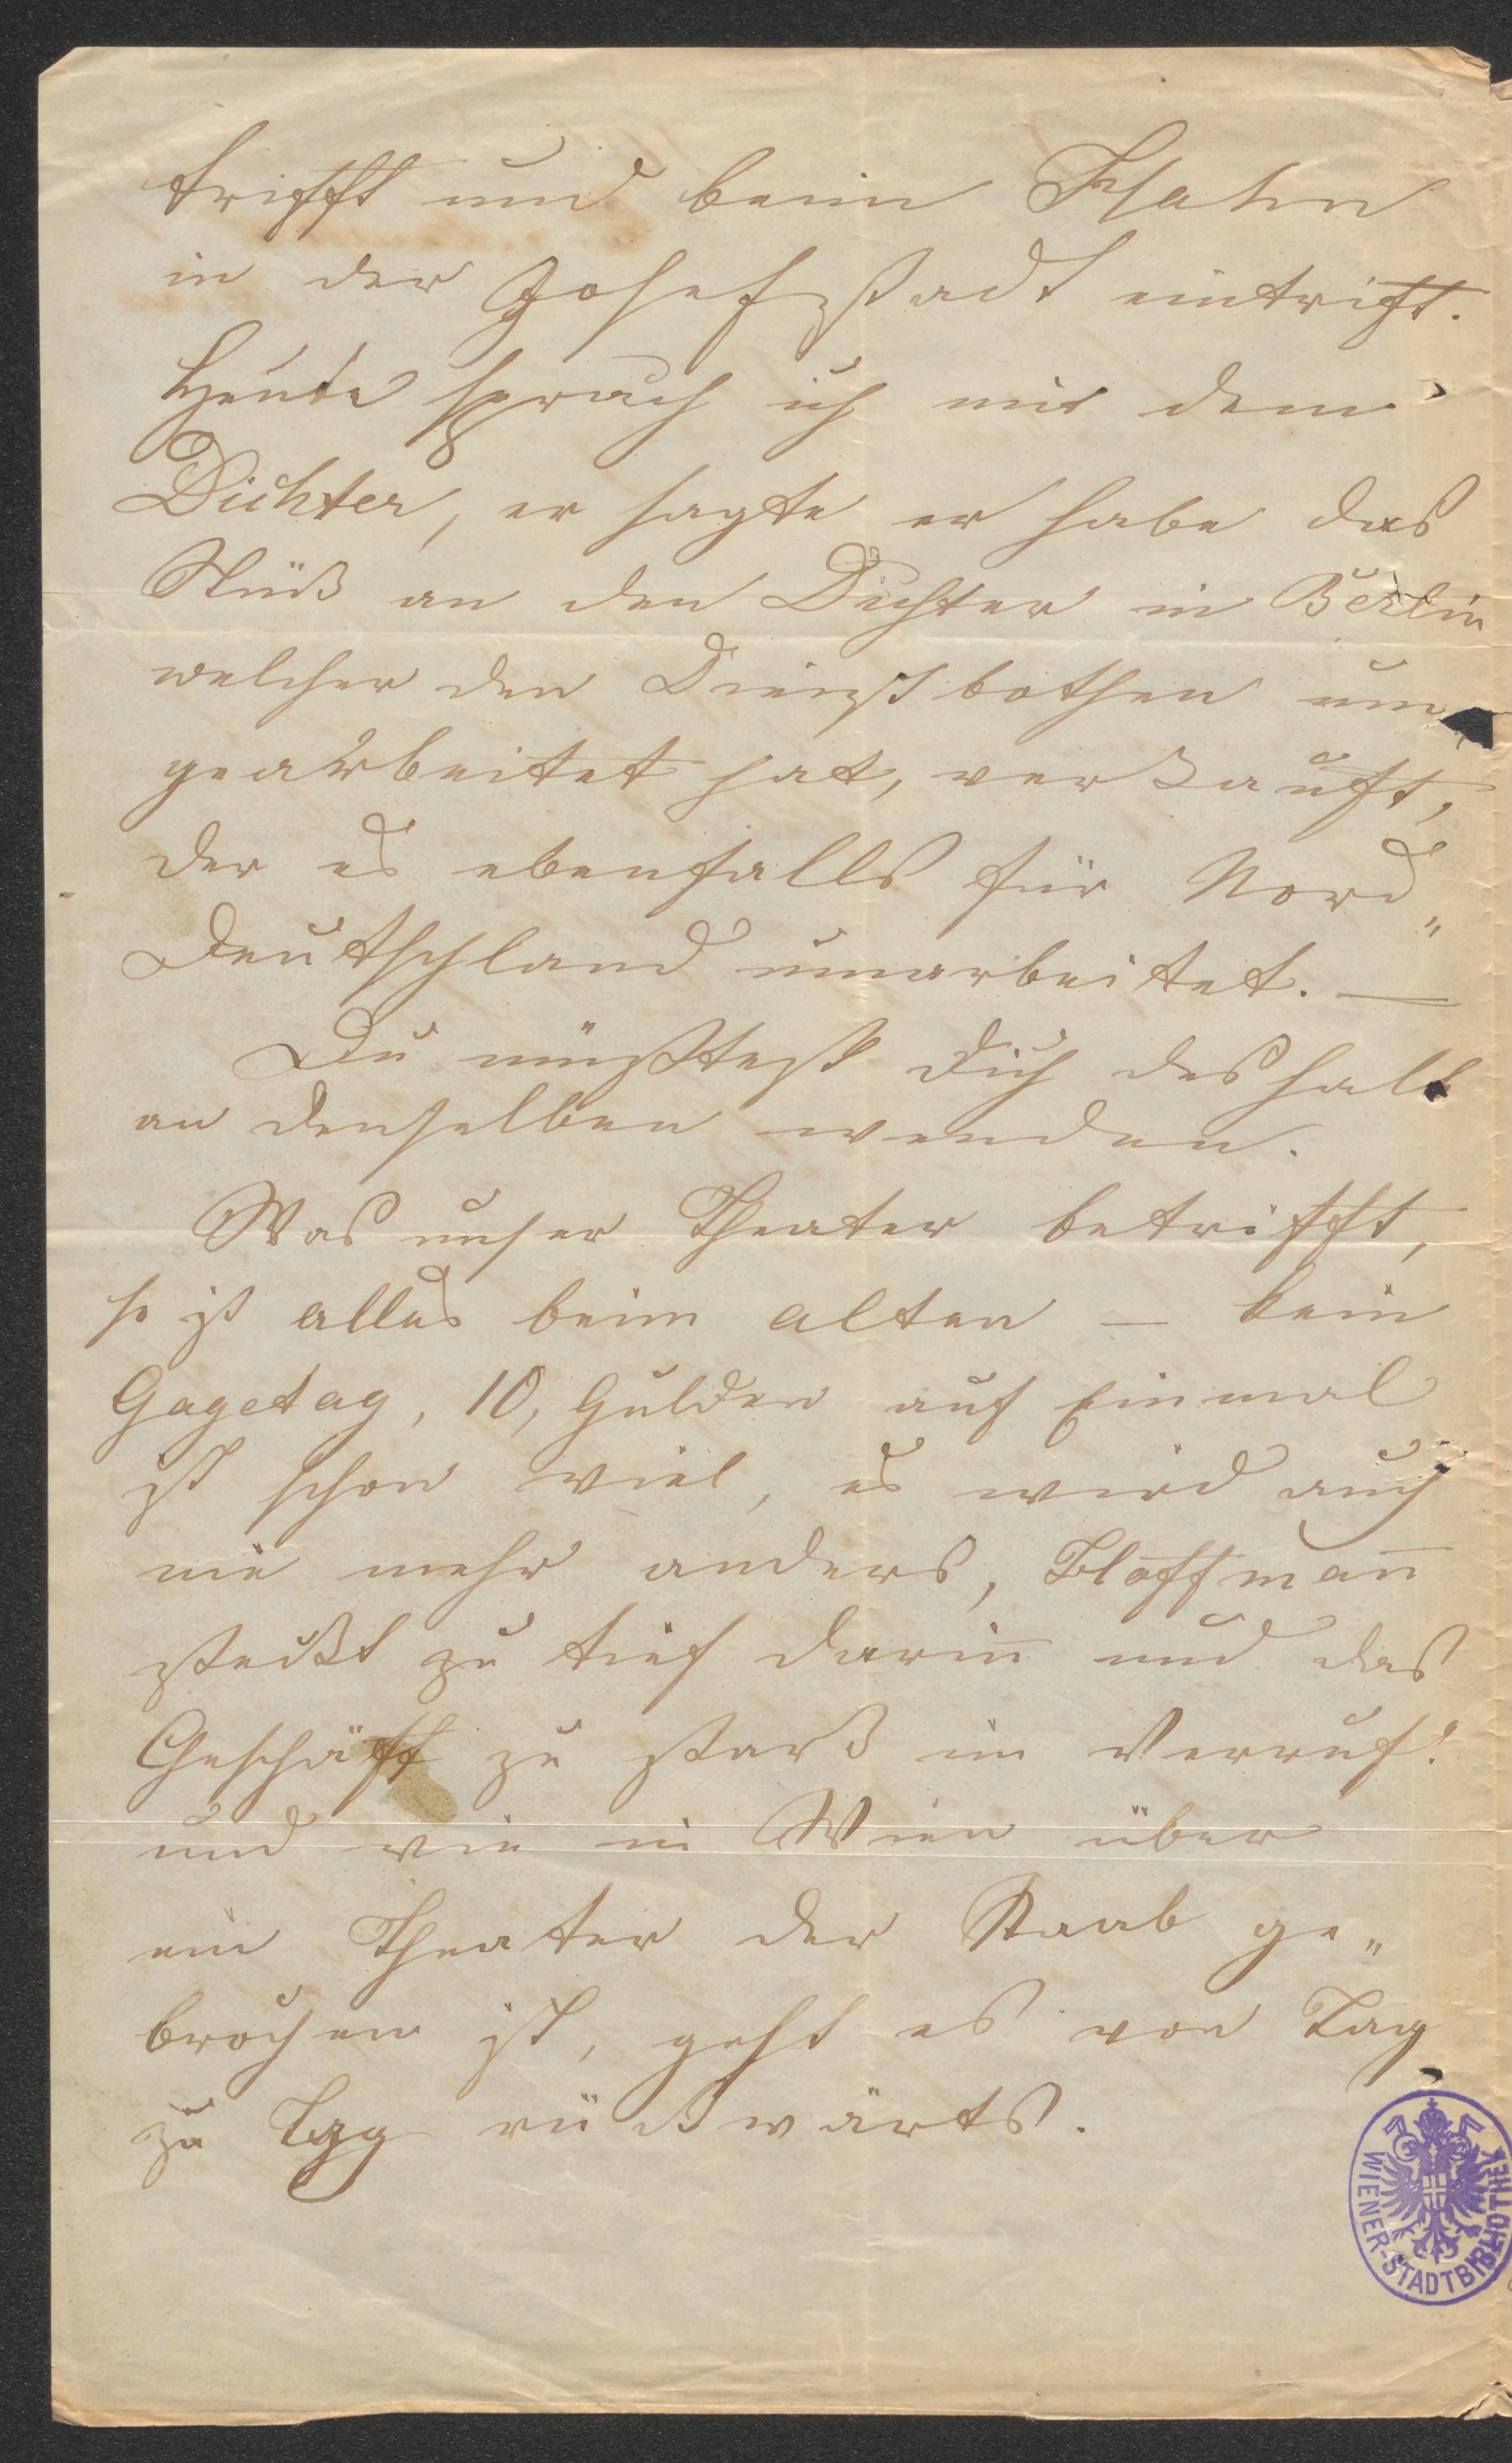 trifft und beim Hahn
in der Josefstadt eintrift.
Heute sprach ich mit dem
Dichter, er sagte er habe das
Stück an den Dichter in Berlin
welcher den Dienstbothen um
gearbeitet hat, verkauft,
der es ebenfalls für Nord„
Deutschland umarbeitet. —
Du müsstest Dich deshalb
an denselben wenden.
Was unser Theater betrifft,
so ist alles beim alten — kein
Gagetag, 10, Gulden auf Einmal
ist schon viel, es wird auch
nie mehr anders, Hoffman̄
steckt zu tief darin̄ und das
Geschäft zu stark im Verruf!
und wie in Wien über
ein Theater der Staab ge„
brochen ist, geht es von Tag
zu Tag rückwärts.
WIENER-STADTBIBLIOTHEK